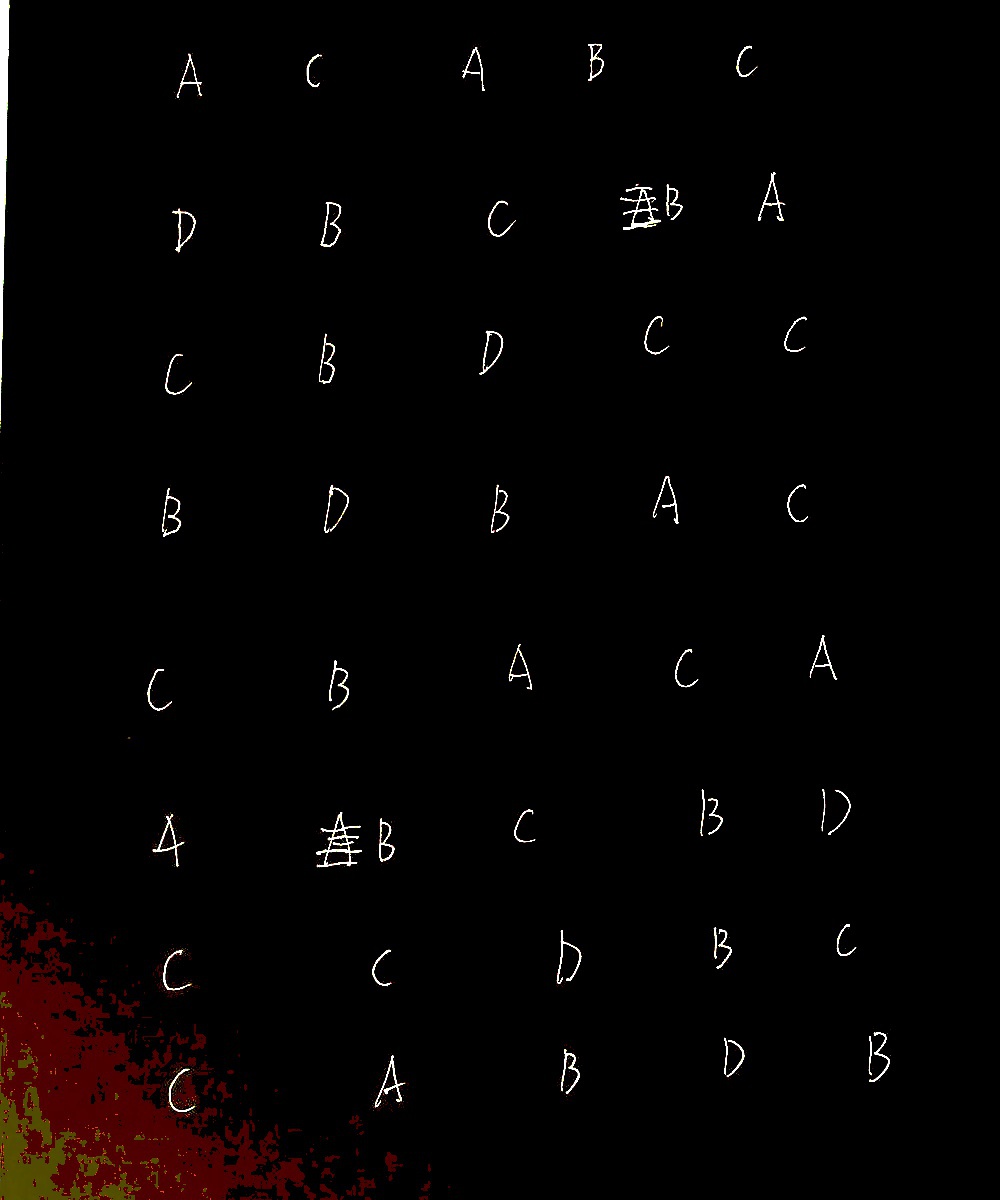 A C A B C
D B C B A
C B D C C
B D B A C
C B A C A
A B C B D
C C D B C
C A B D B